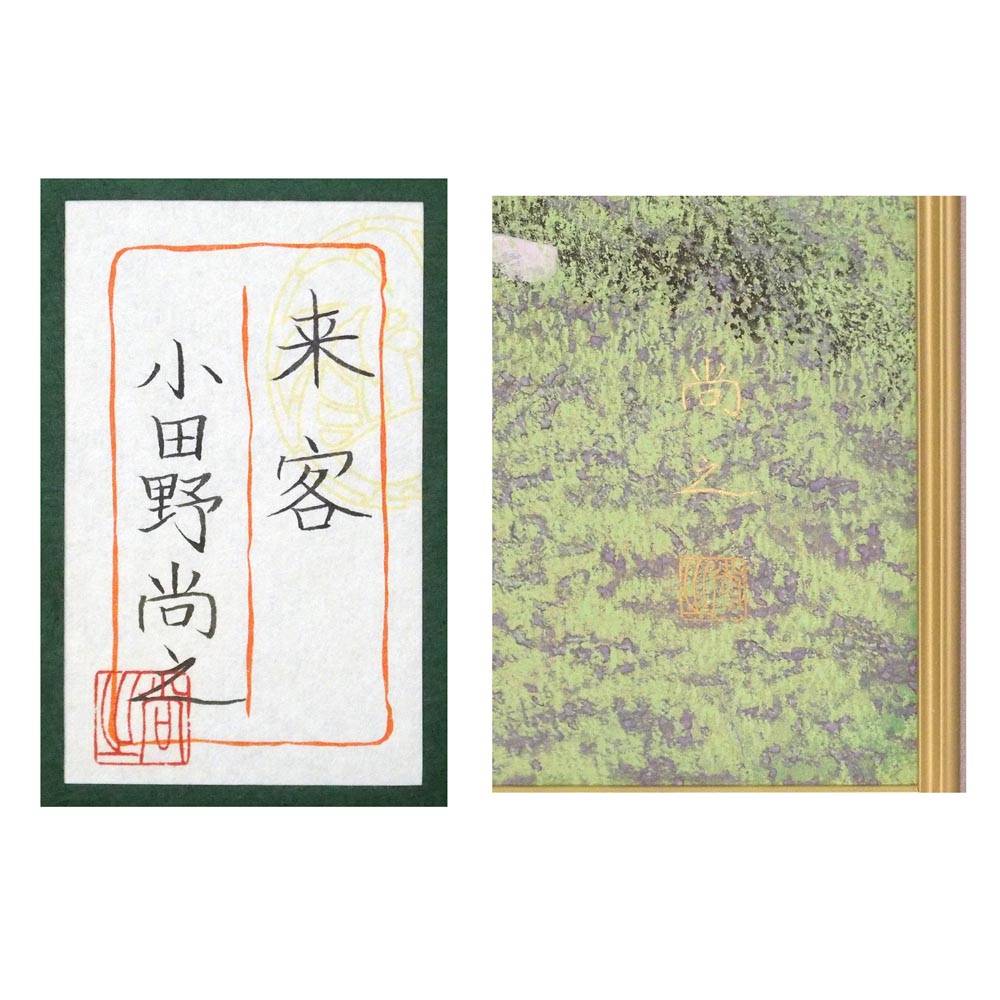 来客
小田野尚之
尚之